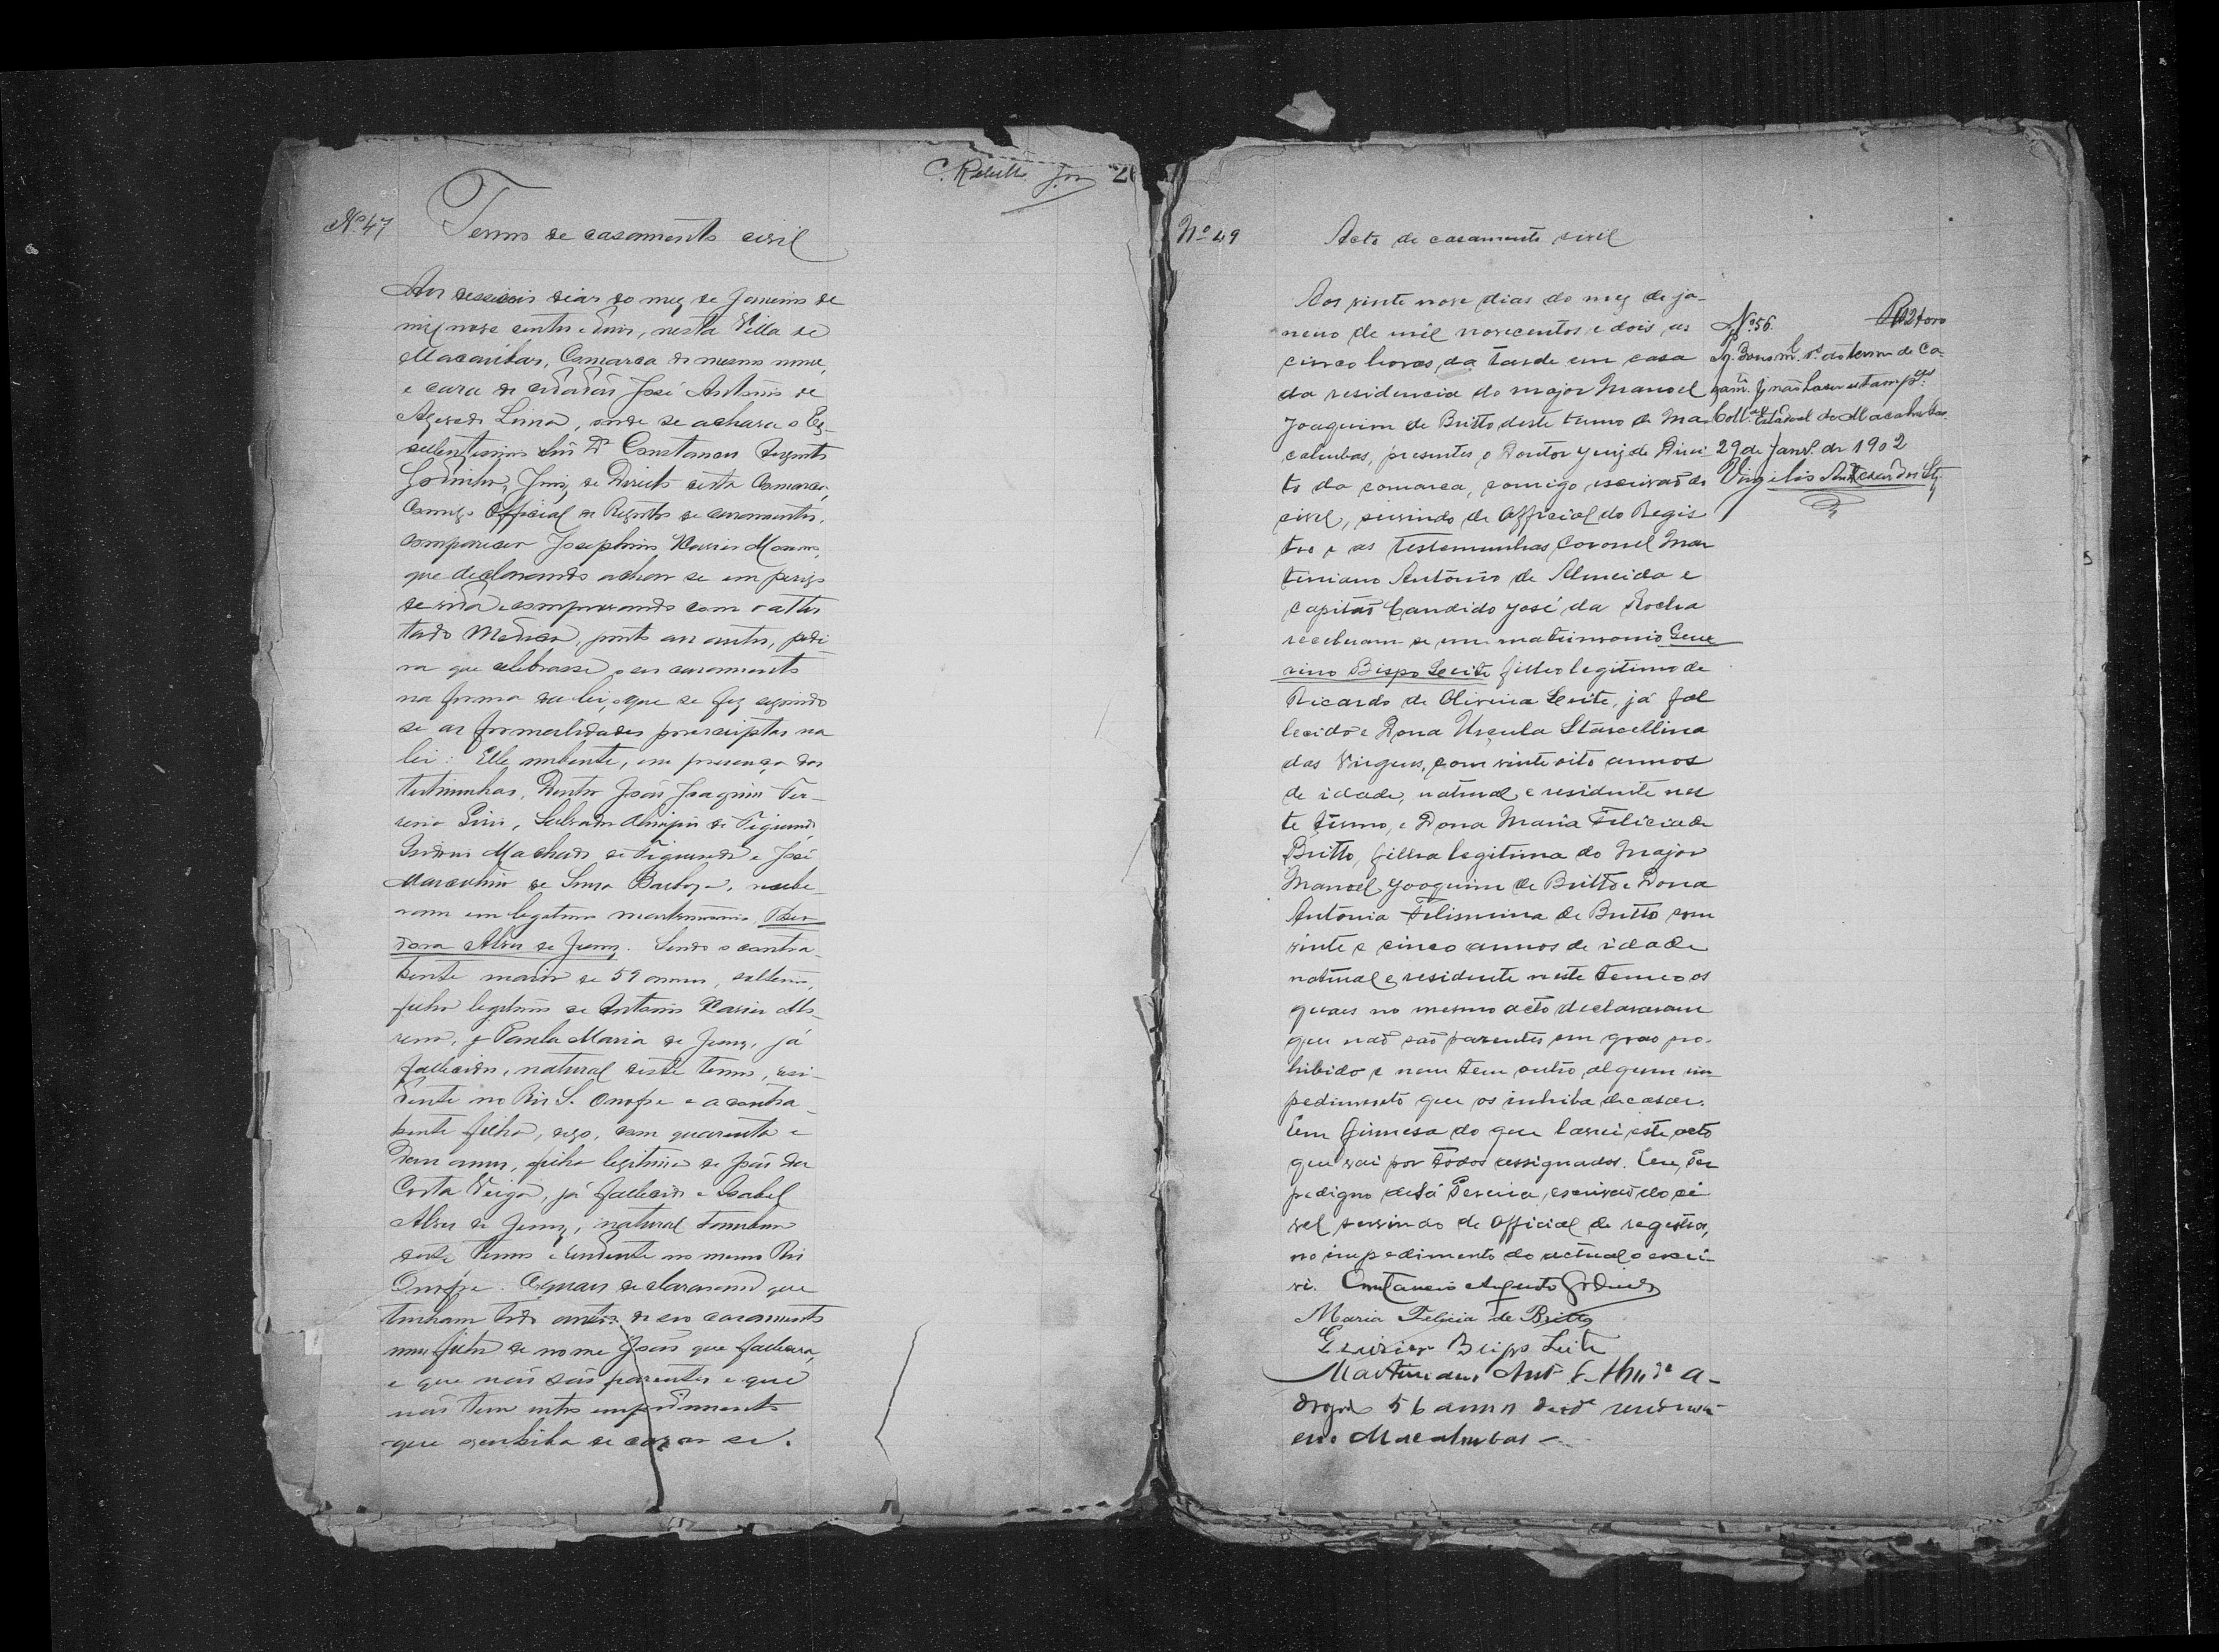 C. Rabello
Nº 47
Termo de casamento civil
Aos desseseis dias do mez de Janeiro de
mil nove centos e dois, nesta Villa de
Macaúbas, Comarca do mesmo nome,
e casa do cidadão José Antonio de
Azevedo Lima, onde se achava o Ex-
cellentissimo Snr Dr Constancio Augusto
Godinho, Juiz de Direito desta Comarca,
Comigo Official do Registro de casamentos,
compareceu Josephino Xavier Moreno,
que declarando achar se em perigo
de vida e comprovando com o attes
tado Medico, junto aos autos, pedi
ra que celebrasse o seu casamento
na forma da lei, o que se fez seguindo
se as formalidades prescriptas na
lei: Elle nubente, em presença das
testimunhas, Doutor José Joaquim Fer-
reira, Salvador de Figueredo,
Machado de Figueredo e José
de Souza Barboza, recebe-
ram em legitimo matrimonio,
Alves de Jesus. Sendo o contra
hente maior de 59 annos, solteiro,
filho legitimo de Antonio Xavier Mo-
reno, e Paula Maria de Jesus, já
fallecidos, natural deste termo, resi-
dente no Rio S. Onofre e a contra
hente filha, digo, com quarenta e
annos, filha legitima de José da
Costa Veiga, já fallecido e Isabel
Alves de Jesus, natural tambem
deste Termo e residente no mesmo Rio
Onofre. Os quaes declararam que
tinham tido antes do seu casamento
um filho de nome José que fallecera,
e que não são parentes e que
não tem outro impedimento
que os inhiba de casar se.
Nº 49
Acto de casamento civil
Aos vinte nove dias do mez de ja-
neiro de mil novecentos e dois, as
cinco horas da tarde em casa
da residencia do major Manoel
Joaquim de Britto deste termo de Ma
cahubas, presentes o Doutor Juiz de Direi
to da comarca, comigo escrivão do
civel, servindo de Official do Regis
tro e as testemunhas Coronel Mar
tiniano Antônio de Almeida e
capitão Candido José da Rocha
receberam se em matrimonio Seve
rino Bispo Leite filho legitimo de
Ricardo de Oliveira Leite, já fal
lecido e Dona Ursula Marcellina
das Virgens, com vinte oito annos
de idade, natural e residente nes
te termo, e Dona Maria Felicia de
Britto, filha legitima do Major
Manoel Joaquim de Britto e Dona
Antônia Felismina de Britto com
vinte e cinco annos de idade
natural e residente neste termo os
quaes no mesmo acto declararam
que não são parentes em grao pro-
hibido e nem tem outro algum im
pedimento que os inhiba de casar.
Em firmesa do que lavrei este acto
que vai por todos assignados. Eu, Per
pedigno de Sá Pereira, escrivão do ci
vel servindo de Official de registro,
no impedimento do actual o escre-
vi. Constancio Augusto Godinho
Maria Felicia de Britto
Bispo Leite
Martiniano Antº d'Almda
56 annos
em Macahubas
Nº 56.
do termo de Ca-
samto. q não haver estampas
Collria Estadoal de Macahubas
29 de Janrº de 1902